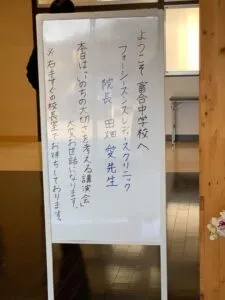 ようこそ 富合中学校へ
フォーシーズンズレディースクリニック
院長 田畑 愛先生
本日は「いのちの大切さを考える講演会」
大変お世話になります。
※右手すぐの校長室でお待ちしております。